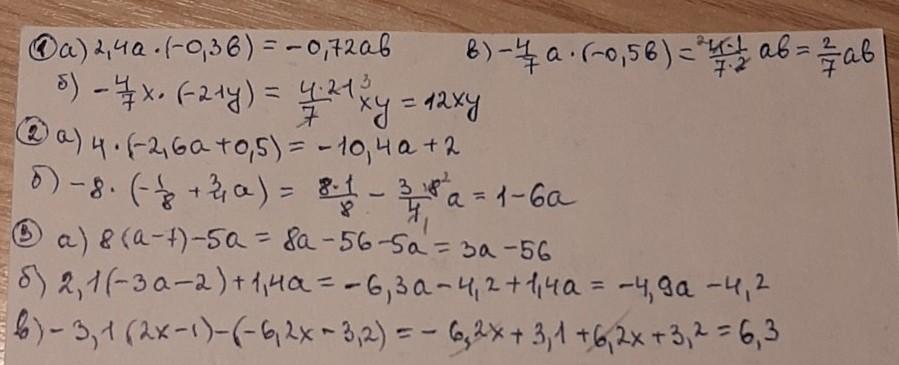 ① а) 2,4a·(-0,3в) = -0,72ав в) -4/7 a·(-0,5в) = 4·1/7·2 ав = 2/7 ав
б) -4/7 x·(-21y) = 4·21³/7 xy = 12xy
② а) 4·(-2,6a+0,5) = -10,4a+2
б) -8·(-1/8 + 3/4 a) = 8·1/8 - 3·8²/4₁ a = 1-6a
③ а) 8(a-7)-5a = 8a-56-5a = 3a-56
б) 2,1(-3a-2)+1,4a = -6,3a-4,2+1,4a = -4,9a-4,2
в) -3,1(2x-1)-(-6,2x-3,2) = -6,2x+3,1+6,2x+3,2 = 6,3